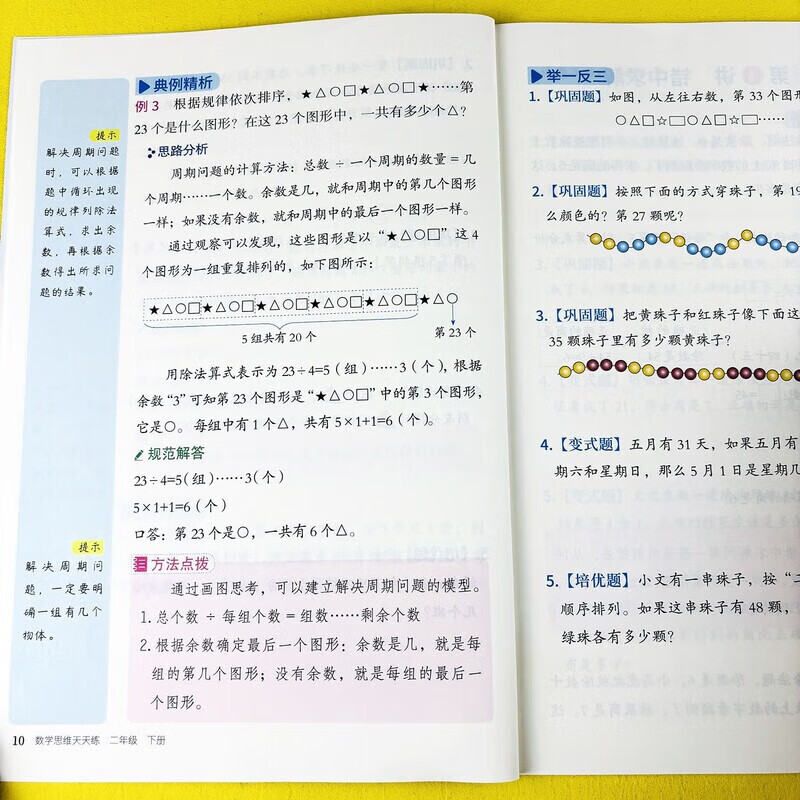 典例精析
例3 根据规律依次排序，★△○□★△○□★……第
23个是什么图形？在这23个图形中，一共有多少个△？
思路分析
周期问题的计算方法：总数÷一个周期的数量＝几
个周期……一个数。余数是几，就和周期中的第几个图形
一样；如果没有余数，就和周期中的最后一个图形一样。
通过观察可以发现，这些图形是以“★△○□”这4
个图形为一组重复排列的，如下图所示：
★△○□★△○□★△○□★△○□★△○□★△○
5组共有20个
第23个
用除法算式表示为23÷4=5（组）……3（个），根据
余数“3”可知第23个图形是“★△○□”中的第3个图形，
它是○。每组中有1个△，共有5×1+1=6（个）。
规范解答
23÷4=5（组）……3（个）
5×1+1=6（个）
口答：第23个是○，一共有6个△。
方法点拨
通过画图思考，可以建立解决周期问题的模型。
1. 总个数 ÷ 每组个数 = 组数……剩余个数
2. 根据余数确定最后一个图形：余数是几，就是每
组的第几个图形；没有余数，就是每组的最后一
个图形。
提示
解决周期问题
时，可以根据
题中循环出现
的规律列除法
算式，求出余
数，再根据余
数得出所求问
题的结果。
提示
解决周期问
题，一定要明
确一组有几个
物体。
10 数学思维天天练 二年级 下册
举一反三
1.【巩固题】如图，从左往右数，第33个图形
○△□☆□○△□☆□……
2.【巩固题】按照下面的方式穿珠子，第19
么颜色的？第27颗呢？
3.【巩固题】把黄珠子和红珠子像下面这
35颗珠子里有多少颗黄珠子？
4.【变式题】五月有31天，如果五月有
期六和星期日，那么5月1日是星期几
5.【培优题】小文有一串珠子，按“二
顺序排列。如果这串珠子有48颗，
绿珠各有多少颗？